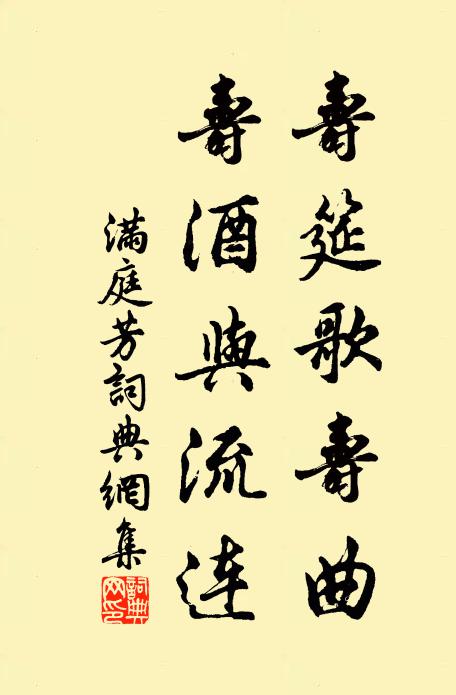 壽筵歌壽曲
壽酒與流連
滿庭芳詞典網集
詞典網印